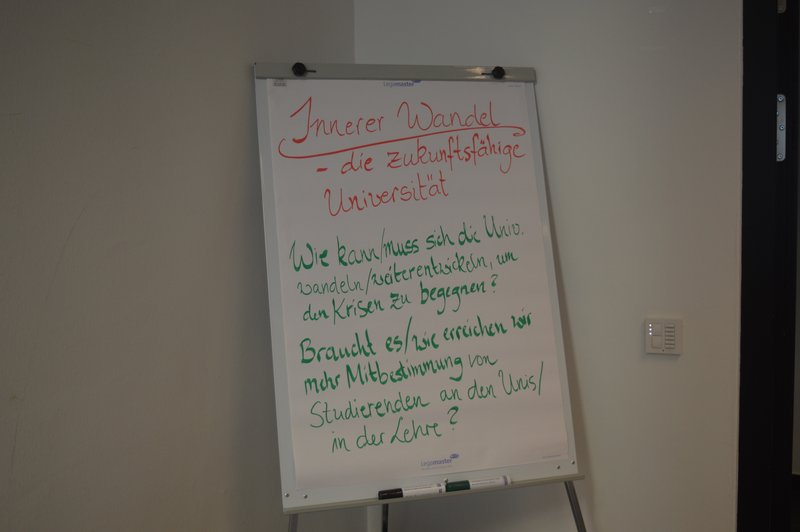 Legamaster
Innerer Wandel
- die zukunftsfähige
Universität
Wie kann/muss sich die Univ.
wandeln/weiterentwickeln, um
den Krisen zu begegnen?
Braucht es/wie erreichen wir
mehr Mitbestimmung von
Studierenden an den Unis/
in der Lehre?
Legamaster